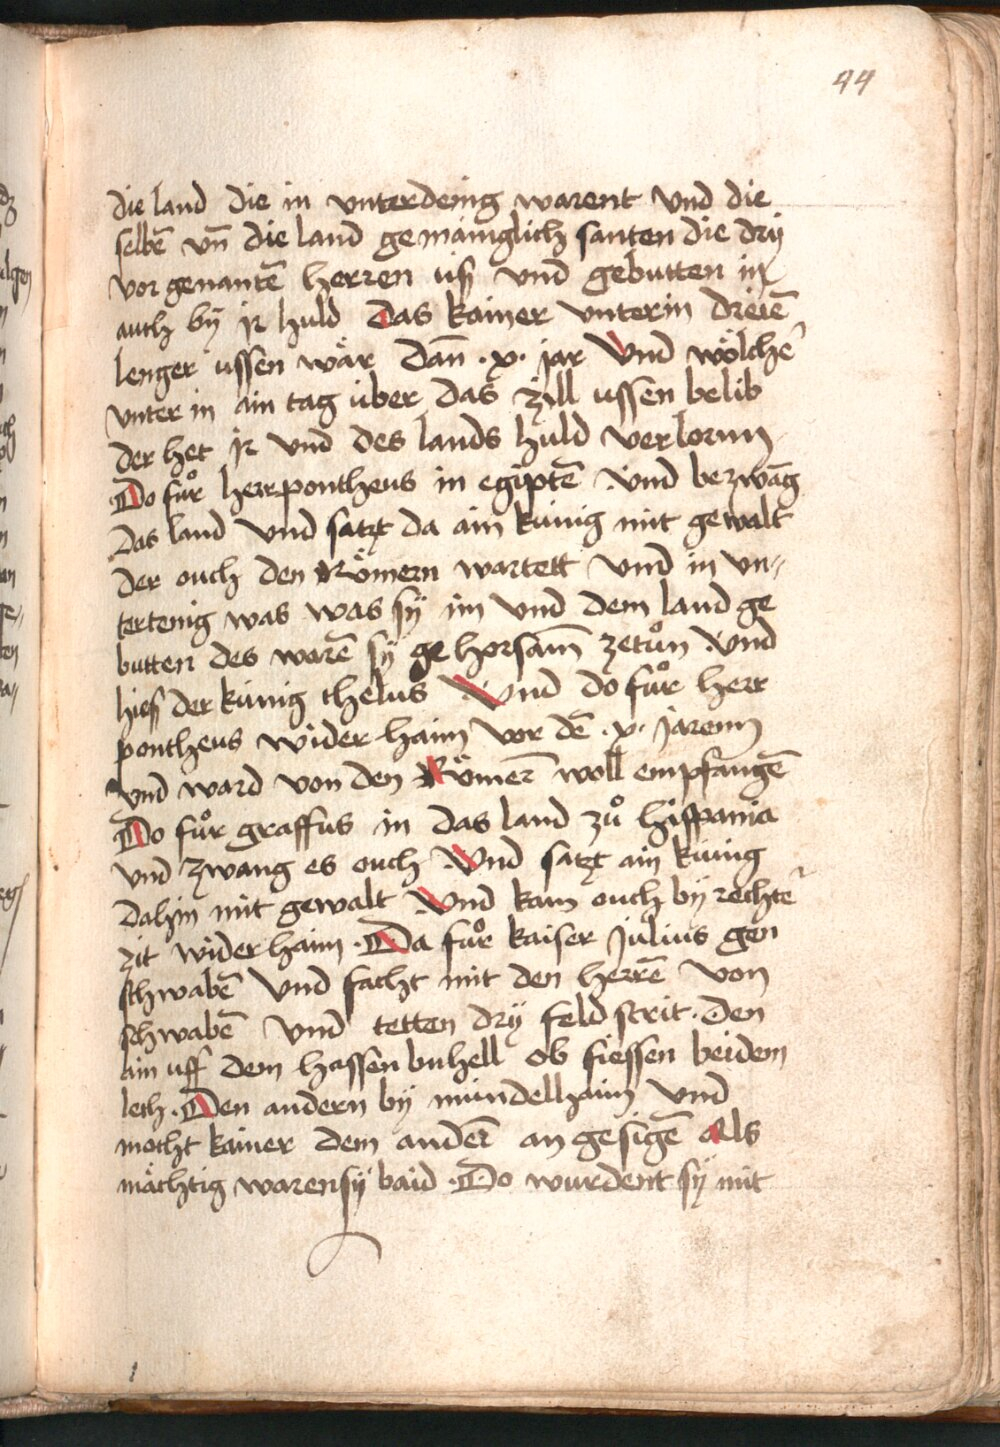 44
die land die in vnterdenig warent vnd die
selbē vn̄ die land gemainiglich santen die dry
vor genantē herren uſz vnd gebutten in
auch bÿ ir huld das kainer vnterin dreiē
lenger uſſen wär dan̄ .x. jar Vnd wölchē
vnter in ain tag über das zyll uſſen belib
der het ir vnd des lands huld verlornn
Do fůr herr pontheus in egiptē vnd bezwāg
das land vnd satzt da ain künig mit gewalt
der ouch den Römern wartett vnd in vn⸗
tertenig was was sÿ im vnd dem land ge
butten des warē sÿ gehorsam̄ zetůn Vnd
hieſz der künig thelus Vnd do fůr herr
pontheus wider haim vor dē .x. jarenn
vnd ward von den Römer̄ woll empfangē
Do fůr graffus in das land zů hiſpania
vnd zwang es ouch Vnd satzt ain künig
dahin mit gewalt Vnd kam ouch bÿ rechte᷑
zit wider haim . Da fůr kaiser Julius gen
schwabē vnd facht mit den herrē von
schwabē vnd tetten drÿ feld strit . Den
ain uff dem haſſenbuhell ob fieſſen beidem
lech . Den andern bÿ mündelhaim vnd
mocht kainer dem ander̄ an gesigē Als
mächtig waren sÿ baid . Do wurdent sÿ mit